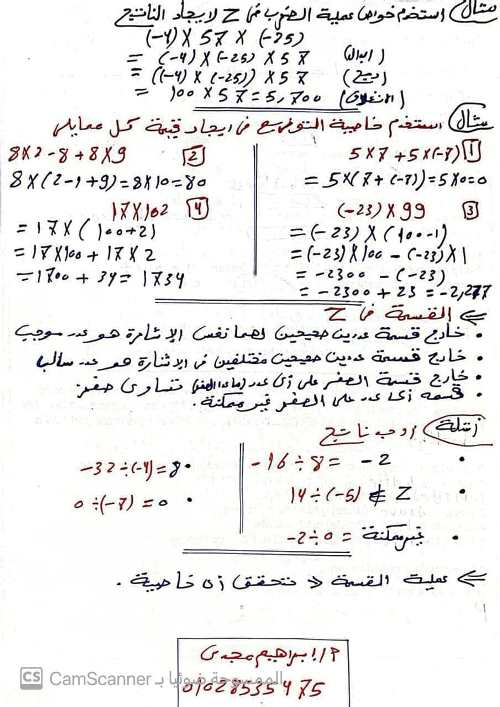 مثال استخدم خواص عملية الضرب فى Z لإيجاد الناتج
(-4) × 57 × (-25)
= (-4) × (-25) × 57 (ابدال)
= ((-4) × (-25)) × 57 (دمج)
= 100 × 57 = 5,700 (الانغلاق)
مثال استخدم خاصية التوزيع فى ايجاد قيمة كل مما يلى
1 5×7 + 5×(-7)
= 5×(7+(-7)) = 5×0 = 0
2 8×2 - 8 + 8×9
8×(2-1+9) = 8×10 = 80
3 (-23) × 99
= (-23) × (100-1)
= (-23)×100 - (-23)×1
= -2300 - (-23)
= -2300 + 23 = -2,277
4 17×102
= 17×(100+2)
= 17×100 + 17×2
= 1700 + 34 = 1734
⇐ القسمة فى Z
• خارج قسمة عددين صحيحين لهما نفس الإشارة هو عدد موجب
• خارج قسمة عددين صحيحين مختلفين فى الإشارة هو عدد سالب
• خارج قسمة الصفر على أى عدد (ماعدا الصفر) تساوى صفر
• قسمة أى عدد على الصفر غير ممكنة.
أمثلة اوجد ناتج
• -16 ÷ 8 = -2
• -32 ÷ (-4) = 8
• 14 ÷ (-5) ∉ Z
• 0 ÷ (-7) = 0
• -2 ÷ 0 = غير ممكنة
⇐ عملية القسمة لا تحقق أى خاصية.
أ/ ابراهيم مجدى
01028535475
CS CamScanner الممسوحة ضوئيا بـ